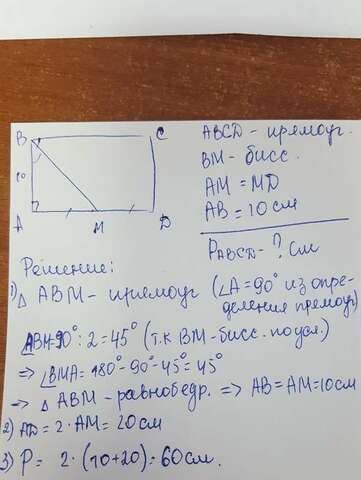 B C
ABCD - прямоуг.
BM - бисс.
10
AM = MD
AB = 10 см
A M D
PABCD - ? см
Решение:
1) △ ABM - прямоуг (∠A = 90° из опре-
деления прямоуг)
∠ABM = 90° : 2 = 45° (т.к BM - бисс. по усл.)
⇒ ∠BMA = 180° - 90° - 45° = 45°
⇒ △ ABM - равнобедр. ⇒ AB = AM = 10 см
2) AD = 2 · AM = 20 см
3) P = 2 · (10 + 20) = 60 см.